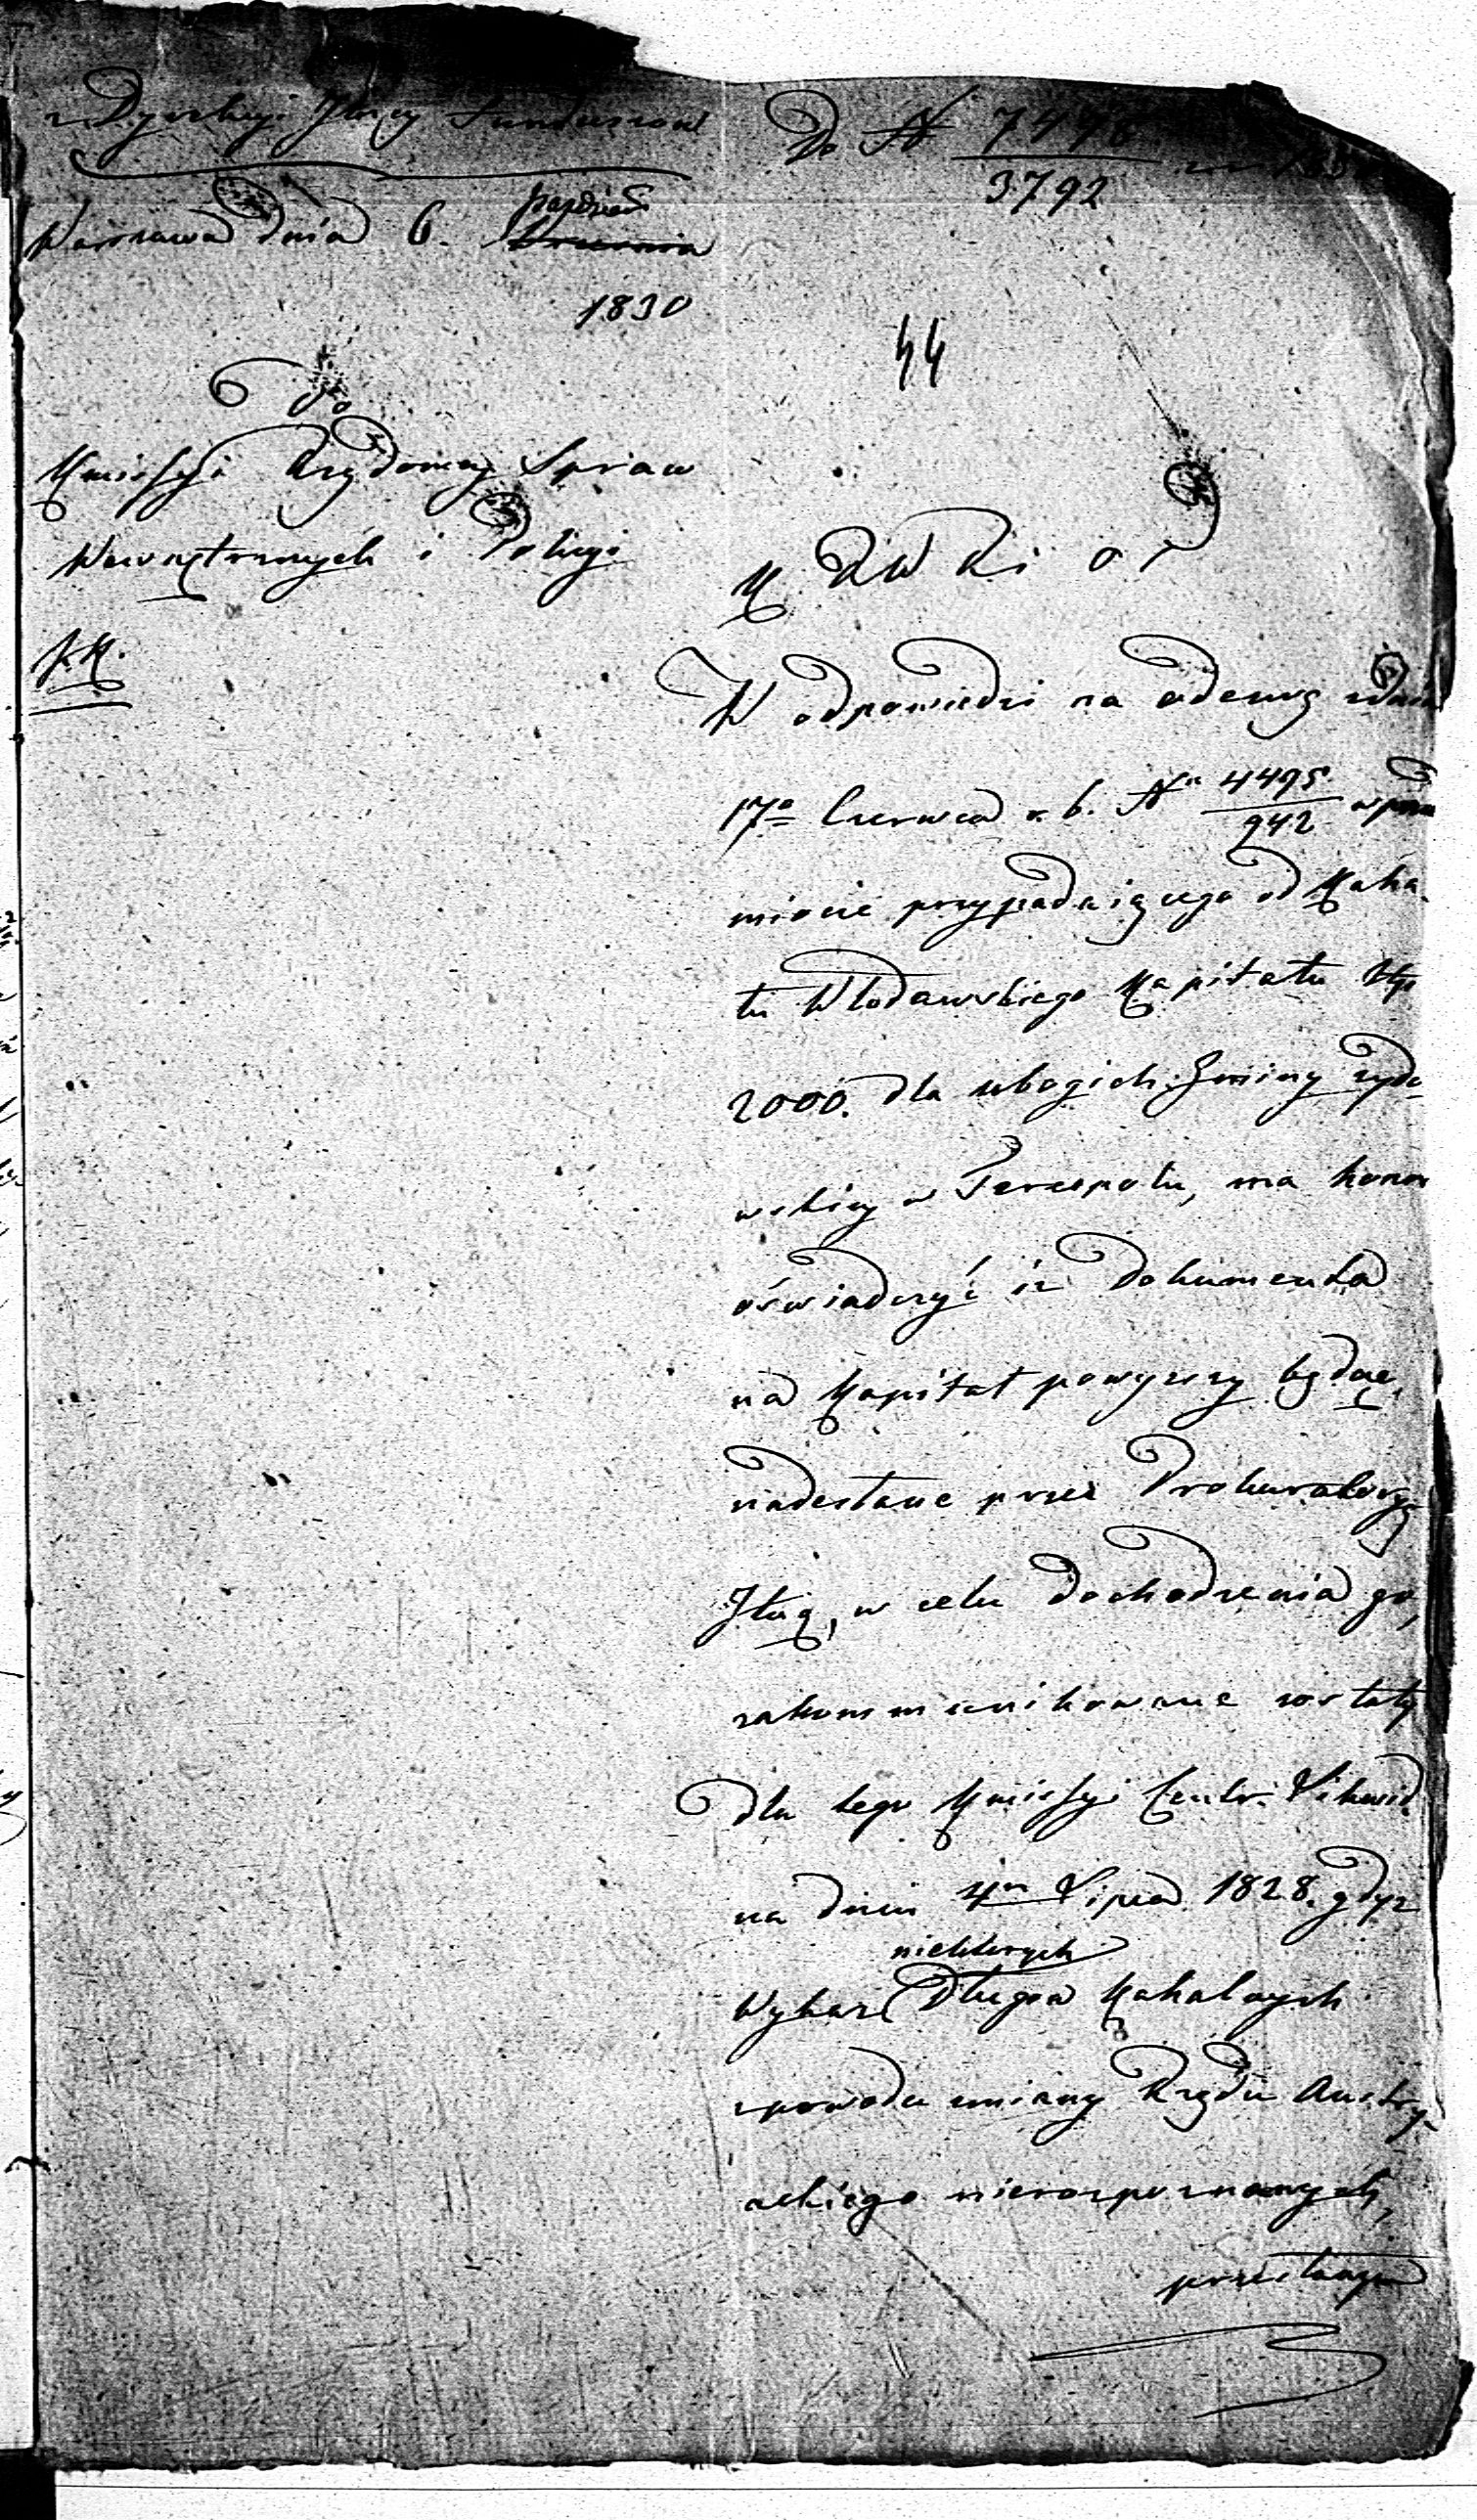 Do N 7478
3792
Warszawa dnia 6. Paździer
1830
44
Do
Kmissyi Rządowey Spraw
Wewnętrznych i Policyi
K. R W R i O P
W odpowiedzi na odezwę z dnia
17º Czerwca r. b. Nº 4495
942 w przed
miocie przypadaiącego od Kaha
łu Włodawskiego Kapitału Złp
2000. dla ubogich Gminy żydo
wskiey w Terespolu, ma honor
oświadczyć iż Dokumenta
na Kapitał powyższy będące,
nadesłane przez Prokuratoryą
Jlną, w celu dochodzenia go,
zakommunikowane zostały
dla tego Kmissyi Centr. Likwid.
na dniu 4m Lipca 1828. gdyż
niektórych
Wykaz Długów Kahalnych
z powodu zmiany Rządu Austry
ackiego nierozpoznanych,
przesłanym